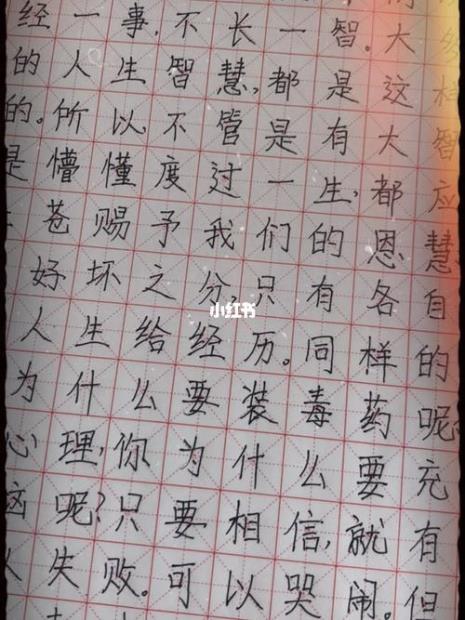 经一事,不长一智。大
的人生智慧,都是这样
的。所以,不管是有大智
是懵懂度过一生,都应
苍赐予我们的恩慧
好坏之分,只有各自
人生给经历。同样的
为什么要装毒药呢
心理,你为什么要充
呢?只要相信,就有
失败。可以哭闹。但
小红书